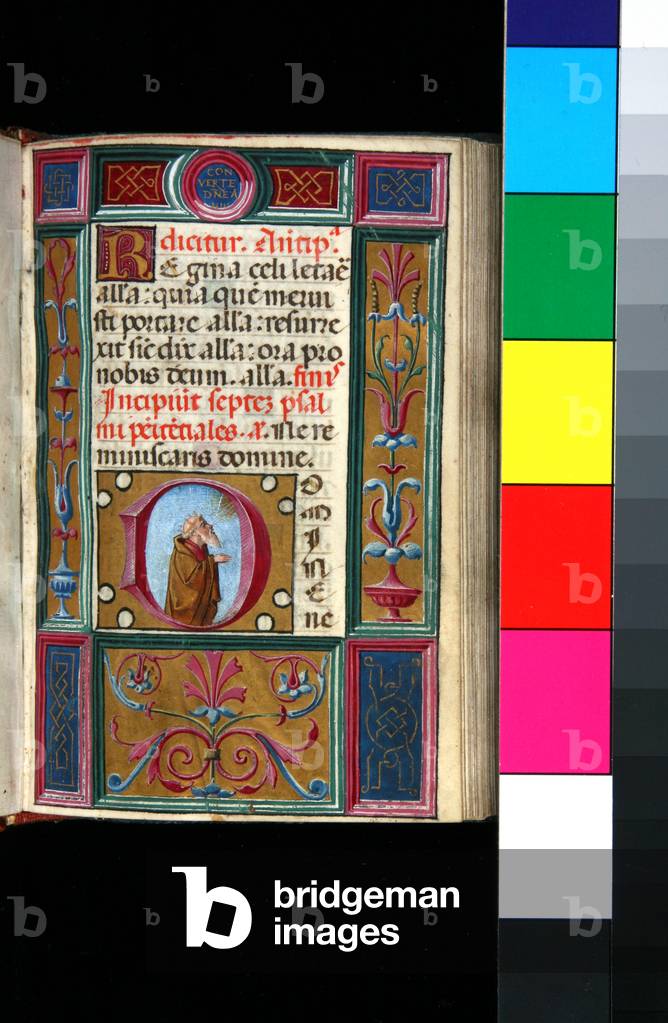 CON
VERTE
DNEA
dicitur. Antip.ª
REgina celi letaē
alla: quia quē merui
sti portare alla: resurre
xit sic̄ dix̄ alla: ora pro
nobis deum. alla. finis
Incipiūt septez psal
mi pēitētiales. a. Ne re
miniscaris domine.
DOMINE
ne
bridgeman
images